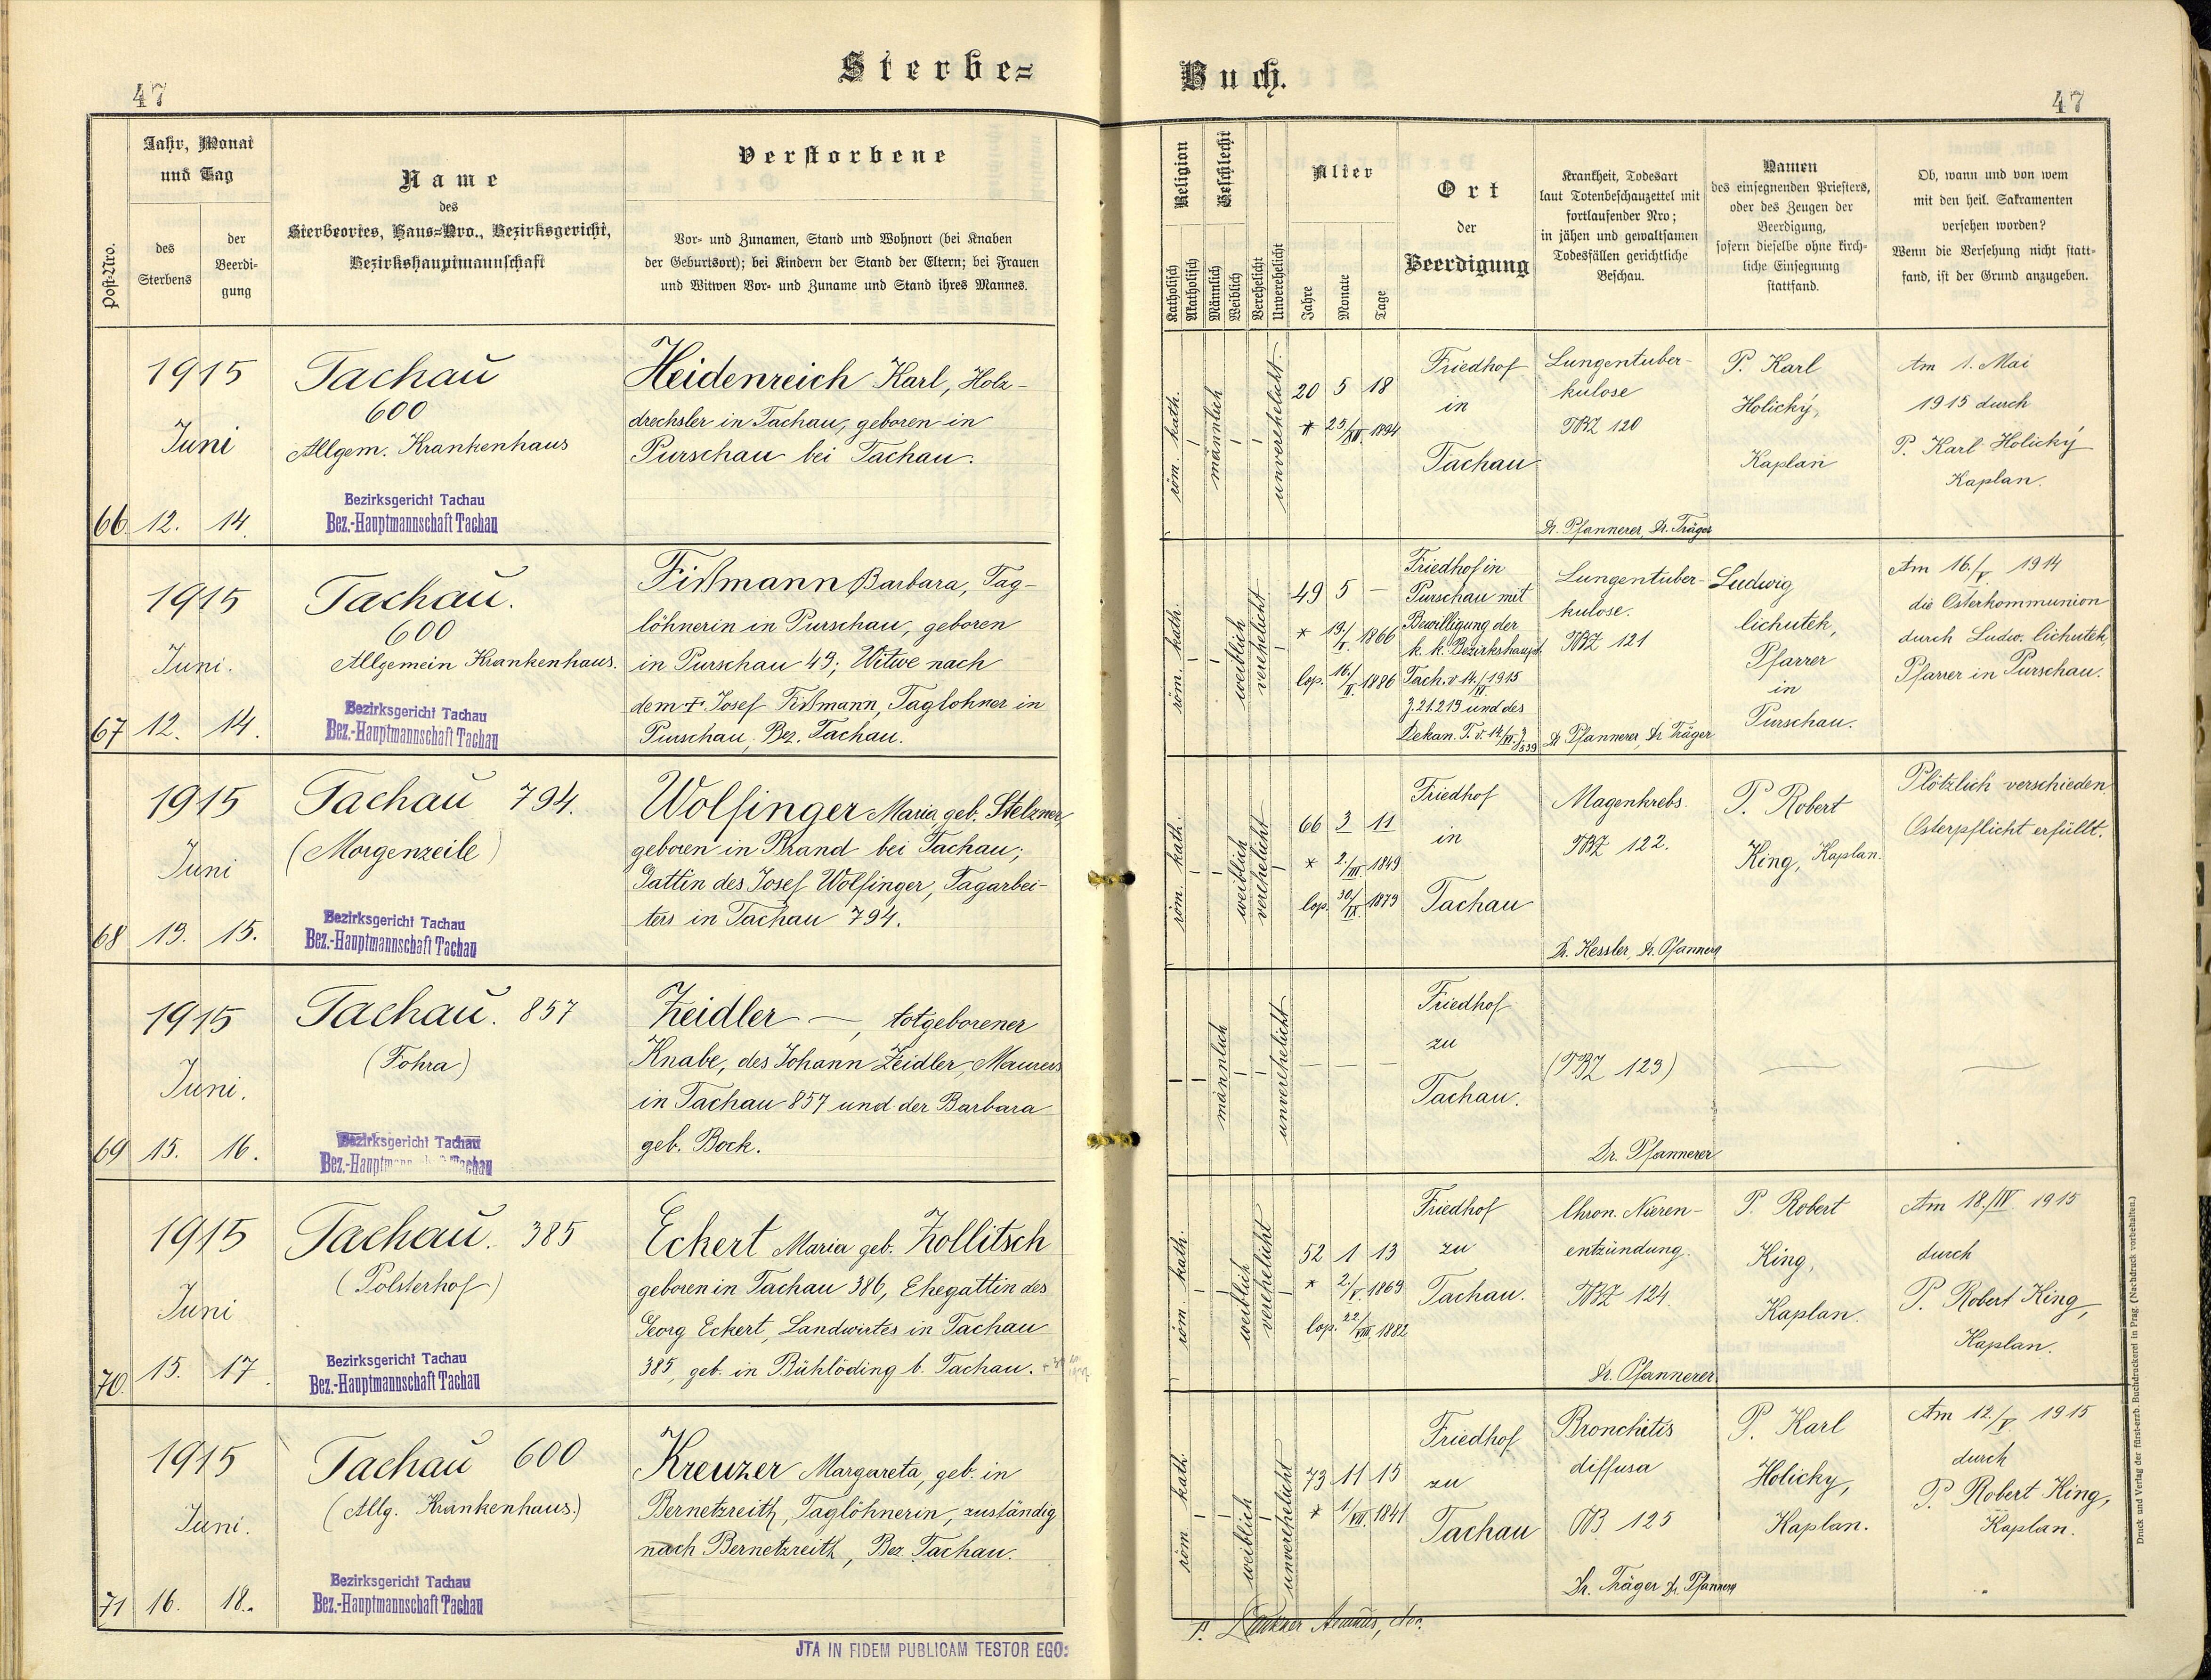 Sterbe-
Buch.
47
47
Jahr, Monat
und Tag
Post-Nro.
des
Sterbens
der
Beerdi-
gung
Name
des
Sterbeortes, Haus-Nro., Bezirksgericht,
Bezirkshauptmannschaft
Verstorbene
Vor- und Zunamen, Stand und Wohnort (bei Knaben
der Geburtsort); bei Kindern der Stand der Eltern; bei Frauen
und Witwen Vor- und Zuname und Stand ihres Mannes.
Religion
Katholisch
Akatholisch
Geschlecht
Männlich
Weiblich
Verehelicht
Unverehelicht
Alter
Jahre
Monate
Tage
Ort
der
Beerdigung
Krankheit, Todesart
laut Totenbeschauzettel mit
fortlaufender Nro;
in jähen und gewaltsamen
Todesfällen gerichtliche
Beschau.
Namen
des einsegnenden Priesters,
oder des Zeugen der
Beerdigung,
sofern dieselbe ohne kirch-
liche Einsegnung
stattfand.
Ob, wann und von wem
mit den heil. Sakramenten
versehen worden?
Wenn die Versehung nicht statt-
fand, ist der Grund anzugeben.
66
1915
Juni
12. 14.
Tachau
600
Allgem. Krankenhaus
Bezirksgericht Tachau
Bez.-Hauptmannschaft Tachau
Heidenreich Karl, Holz-
drechsler in Tachau, geboren in
Purschau bei Tachau.
röm. kath.
männlich
unverehelicht.
20 5 18
* 25/XII. 1894
Friedhof
in
Tachau
Lungentuber-
kulose
TBZ 120
Dr. Pfannerer, Dr. Träger
P. Karl
Holický,
Kaplan
Am 1. Mai
1915 durch
P. Karl Holický
Kaplan.
67
1915
Juni.
12. 14.
Tachau.
600
Allgemein Krankenhaus.
Bezirksgericht Tachau
Bez.-Hauptmannschaft Tachau
Fißmann Barbara, Tag-
löhnerin in Purschau, geboren
in Purschau 49; Witwe nach
dem † Josef Fißmann, Taglöhner in
Purschau, Bez. Tachau.
röm. kath.
weiblich
verehelicht
49 5 —
* 19./I. 1866
cop. 16./II. 1886
Friedhof in
Purschau mit
Bewilligung der
k. k. Bezirkshaupt.
Tach. v. 14./VI. 1915
Z. 21.219 und des
Dekan. T. v. 14/VI. Z. 539
Lungentuber-
kulose.
TBZ 121
Dr Pfannerer, Dr Träger
Ludwig
Cichutek,
Pfarrer
in
Purschau.
Am 16./V. 1914
die Osterkommunion
durch Ludw. Cichutek,
Pfarrer in Purschau.
68
1915
Juni
13. 15.
Tachau 794.
(Morgenzeile)
Bezirksgericht Tachau
Bez.-Hauptmannschaft Tachau
Wolfinger Maria, geb. Stelzner,
geboren in Brand bei Tachau;
Gattin des Josef Wolfinger, Tagarbei-
ters in Tachau 794.
röm. kath.
weiblich
verehelicht
66 3 11
* 2./III. 1849
cop. 30./IX. 1879
Friedhof
in
Tachau
Magenkrebs.
TBZ 122.
Dr. Kessler, Dr. Pfannerer
P. Robert
King, Kaplan.
Plötzlich verschieden.
Osterpflicht erfüllt.
69
1915
Juni.
15. 16.
Tachau. 857
(Fohra)
Bezirksgericht Tachau
Bez.-Hauptmannschaft Tachau
Zeidler —, totgeborener
Knabe, des Johann Zeidler, Maurers
in Tachau 857 und der Barbara
geb. Bock.
männlich
unverehelicht
— — —
Friedhof
zu
Tachau.
(TBZ 123)
Dr. Pfannerer
—
—
70.
1915
Juni
15. 17.
Tachau. 385
(Polsterhof)
Bezirksgericht Tachau
Bez.-Hauptmannschaft Tachau
Eckert Maria geb. Zollitsch
geboren in Tachau 386, Ehegattin des
Georg Eckert, Landwirtes in Tachau
385, geb. in Bühlöding b. Tachau.
röm kath.
weiblich
verehelicht
52 1 13
* 2./V. 1863
cop. 22/VIII. 1882
Friedhof
zu
Tachau.
Chron. Nieren-
entzündung.
TBZ 124.
Dr. Pfannerer
P. Robert
King,
Kaplan.
Am 18./IV. 1915
durch
P. Robert King,
Kaplan.
71
1915
Juni.
16. 18.
Tachau 600
(Allg. Krankenhaus.)
Bezirksgericht Tachau
Bez.-Hauptmannschaft Tachau
Kreuzer Margareta, geb. in
Bernetzreith, Taglöhnerin, zuständig
nach Bernetzreith, Bez. Tachau.
röm kath.
weiblich
unverehelicht
73 11 15
* 1/VII. 1841
Friedhof
zu
Tachau
Bronchitis
diffusa
TB 125
Dr. Träger Dr. Pfannerer
P. Karl
Holicky,
Kaplan.
Am 12./V. 1915
durch
P. Robert King,
Kaplan.
JTA IN FIDEM PUBLICAM TESTOR EGO:
Druck und Verlag der fürst-erzb. Buchdruckerei in Prag. (Nachdruck vorbehalten.)